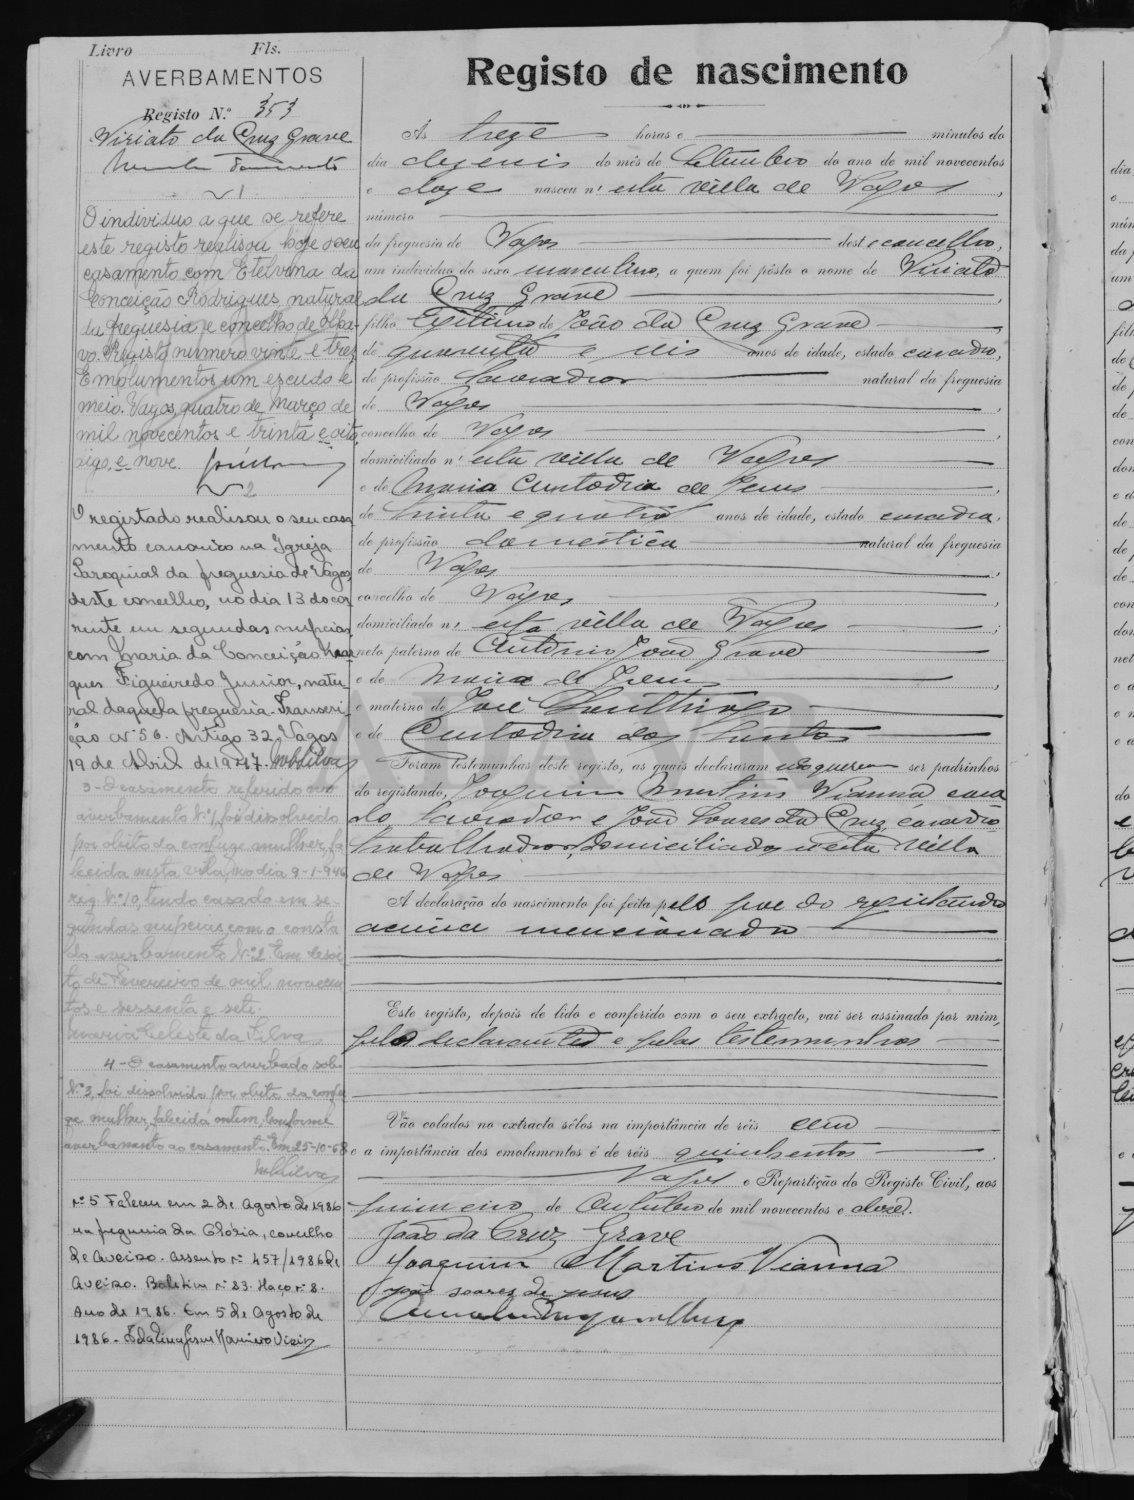 Livro Fls.
AVERBAMENTOS
Registo N.º 353
Viriato da Cruz Grave
1
O individuo a que se refere
este registo realisou hoje o seu
casamento com Etelvina da
Conceição Rodrigues, natural
da freguesia e concelho de Ilha-
vo. Registo numero vinte e tres
Emolumentos um escudo e
meio. Vagos, quatro de Março de
mil novecentos e trinta e oito,
digo, e nove.
2
O registado realisou o seu casa
mento canonico na Igreja
Paroquial da freguesia de Vagos,
deste concelho, no dia 13 do cor
rente em segundas nupcias,
com Maria da Conceição Mar
ques Figueiredo Junior, natu
ral daquela freguesia. Transcri
ção Nº 56. Artigo 32. Vagos
19 de Abril de 1947.
3 - O casamento referido no
averbamento Nº 1, foi dissolvido
por obito da conjuge mulher, fa
lecida nesta vila, no dia 9-1-946
reg. Nº 10, tendo casado em se-
gundas nupcias, como consta
do averbamento Nº 2. Em dezoi
to de Fevereiro de mil novecen
tos e sessenta e sete.
Maria Celeste da Silva
4 - O casamento averbado sob
Nº 3, foi dissolvido por obito da conju
ge mulher, falecida ontem, conforme
averbamento ao casamento. Em 25-10-68
Nº 5 Faleceu em 2 de Agosto de 1986
na freguesia da Glória, concelho
de Aveiro. Assento nº 457/1986 de
Aveiro. Boletim nº 83. Maço nº 8.
Ano de 1986. Em 5 de Agosto de
1986 -
Registo de nascimento
Às treze horas e minutos do
dia dezeseis do mês de Setembro do ano de mil novecentos
e doze nasceu n'esta villa de Vagos,
número
da freguesia de Vagos deste concelho,
um indivíduo do sexo masculino, a quem foi pôsto o nome de Viriato
da Cruz Grave,
filho legitimo de João da Cruz Grave,
de quarenta e seis anos de idade, estado casado,
de profissão lavrador natural da freguesia
de Vagos,
concelho de Vagos,
domiciliado n'esta villa de Vagos
e de Maria Custodia de Jesus,
de trinta e quatro anos de idade, estado casada,
de profissão domestica natural da freguesia
de Vagos,
concelho de Vagos,
domiciliado n'esta villa de Vagos;
neto paterno de Antonio João Grave
e de Maria de Jesus,
e materno de José
e de Custodia dos Santos
Foram testemunhas deste registo, as quais declararam não querem ser padrinhos
do registando, Joaquim Martins Vianna, casa
do, lavrador e João Soares da Cruz, casado
trabalhador, domiciliados n'esta villa
de Vagos
A declaração do nascimento foi feita pelo pae do registando
acima mencionado
Este registo, depois de lido e conferido com o seu extracto, vai ser assinado por mim,
pelo declarante e pelas testemunhas
Vão colados no extracto sêlos na importância de réis cem
e a importância dos emolumentos é de réis quinhentos
Vagos e Repartição do Registo Civil, aos
primeiro de Outubro de mil novecentos e doze.
João da Cruz Grave
Joaquim Martins Vianna
João Soares de Jesus